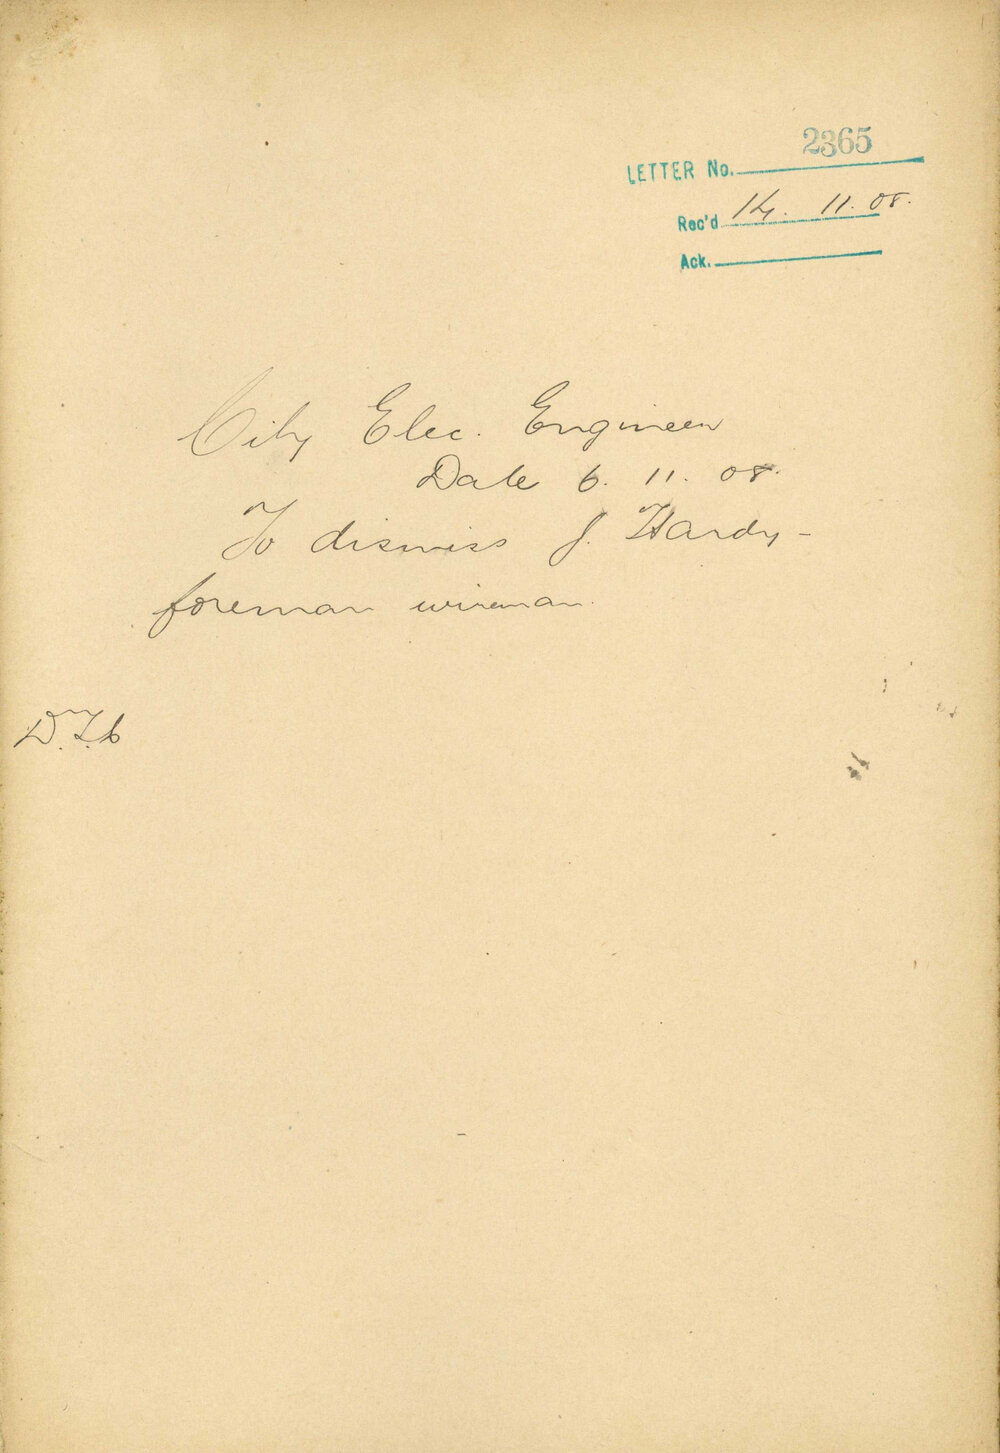 LETTER No. 2365
Rec'd 14. 11. 08.
Ack.
City Elec. Engineer
Date 6. 11. 08.
To dismiss J. Hardy -
foreman wireman.